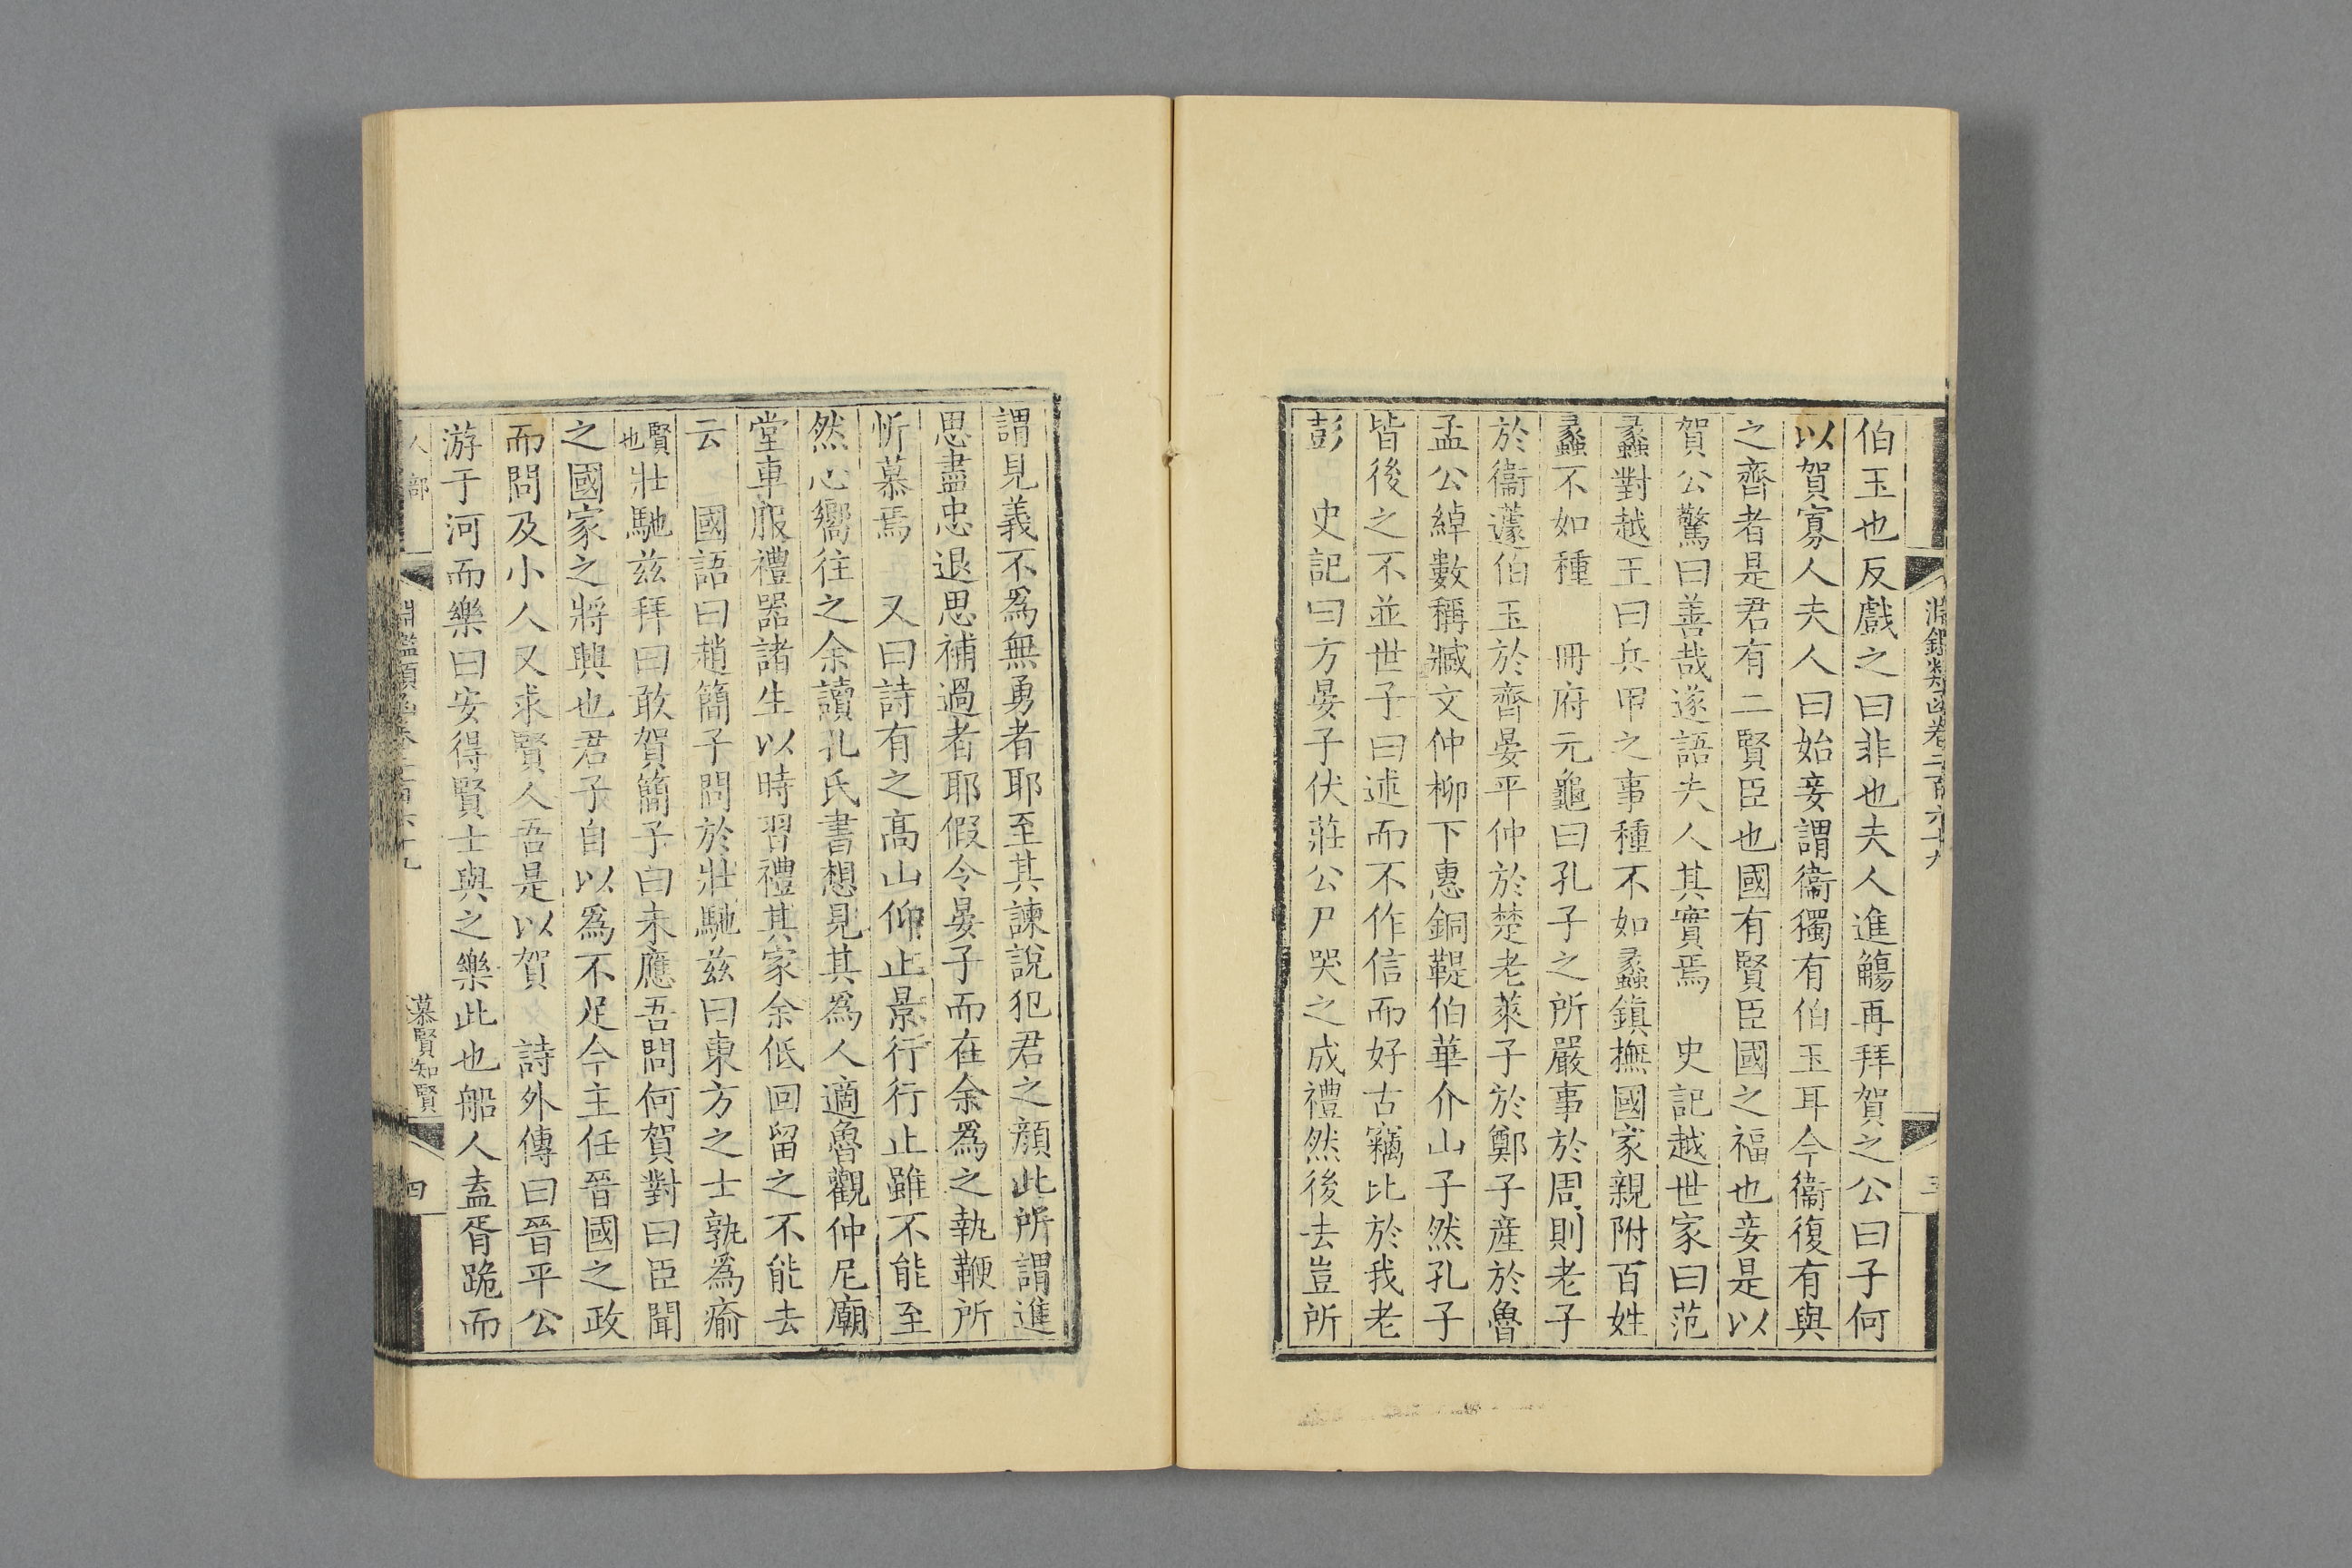 淵鑑類函卷二百六十九
三
伯玉也反戲之曰非也夫人進觴再拜賀之公曰子何
以賀寡人夫人曰始妾謂衞獨有伯玉耳今衞復有與
之齊者是君有二賢臣也國有賢臣國之福也妾是以
賀公驚曰善哉遂語夫人其實焉　史記越世家曰范
蠡對越王曰兵甲之事種不如蠡鎮撫國家親附百姓
蠡不如種　冊府元龜曰孔子之所嚴事於周則老子
於衞蘧伯玉於齊晏平仲於楚老萊子於鄭子產於魯
孟公綽數稱臧文仲柳下惠銅鞮伯華介山子然孔子
皆後之不並世子曰述而不作信而好古竊比於我老
彭　史記曰方晏子伏莊公尸哭之成禮然後去豈所
謂見義不爲無勇者耶至其諫說犯君之顔此所謂進
思盡忠退思補過者耶假令晏子而在余爲之執鞭所
忻慕焉　又曰詩有之高山仰止景行行止雖不能至
然心嚮往之余讀孔氏書想見其爲人適魯觀仲尼廟
堂車服禮器諸生以時習禮其家余低回留之不能去
云　國語曰趙簡子問於壯馳茲曰東方之士孰爲瘉
賢也壯馳茲拜曰敢賀簡子曰未應吾問何賀對曰臣聞
之國家之將興也君子自以爲不足今主任晉國之政
而問及小人又求賢人吾是以賀　詩外傳曰晉平公
游于河而樂曰安得賢士與之樂此也船人盍胥跪而
人部
淵鑑類函卷二百六十九
慕賢知賢
四